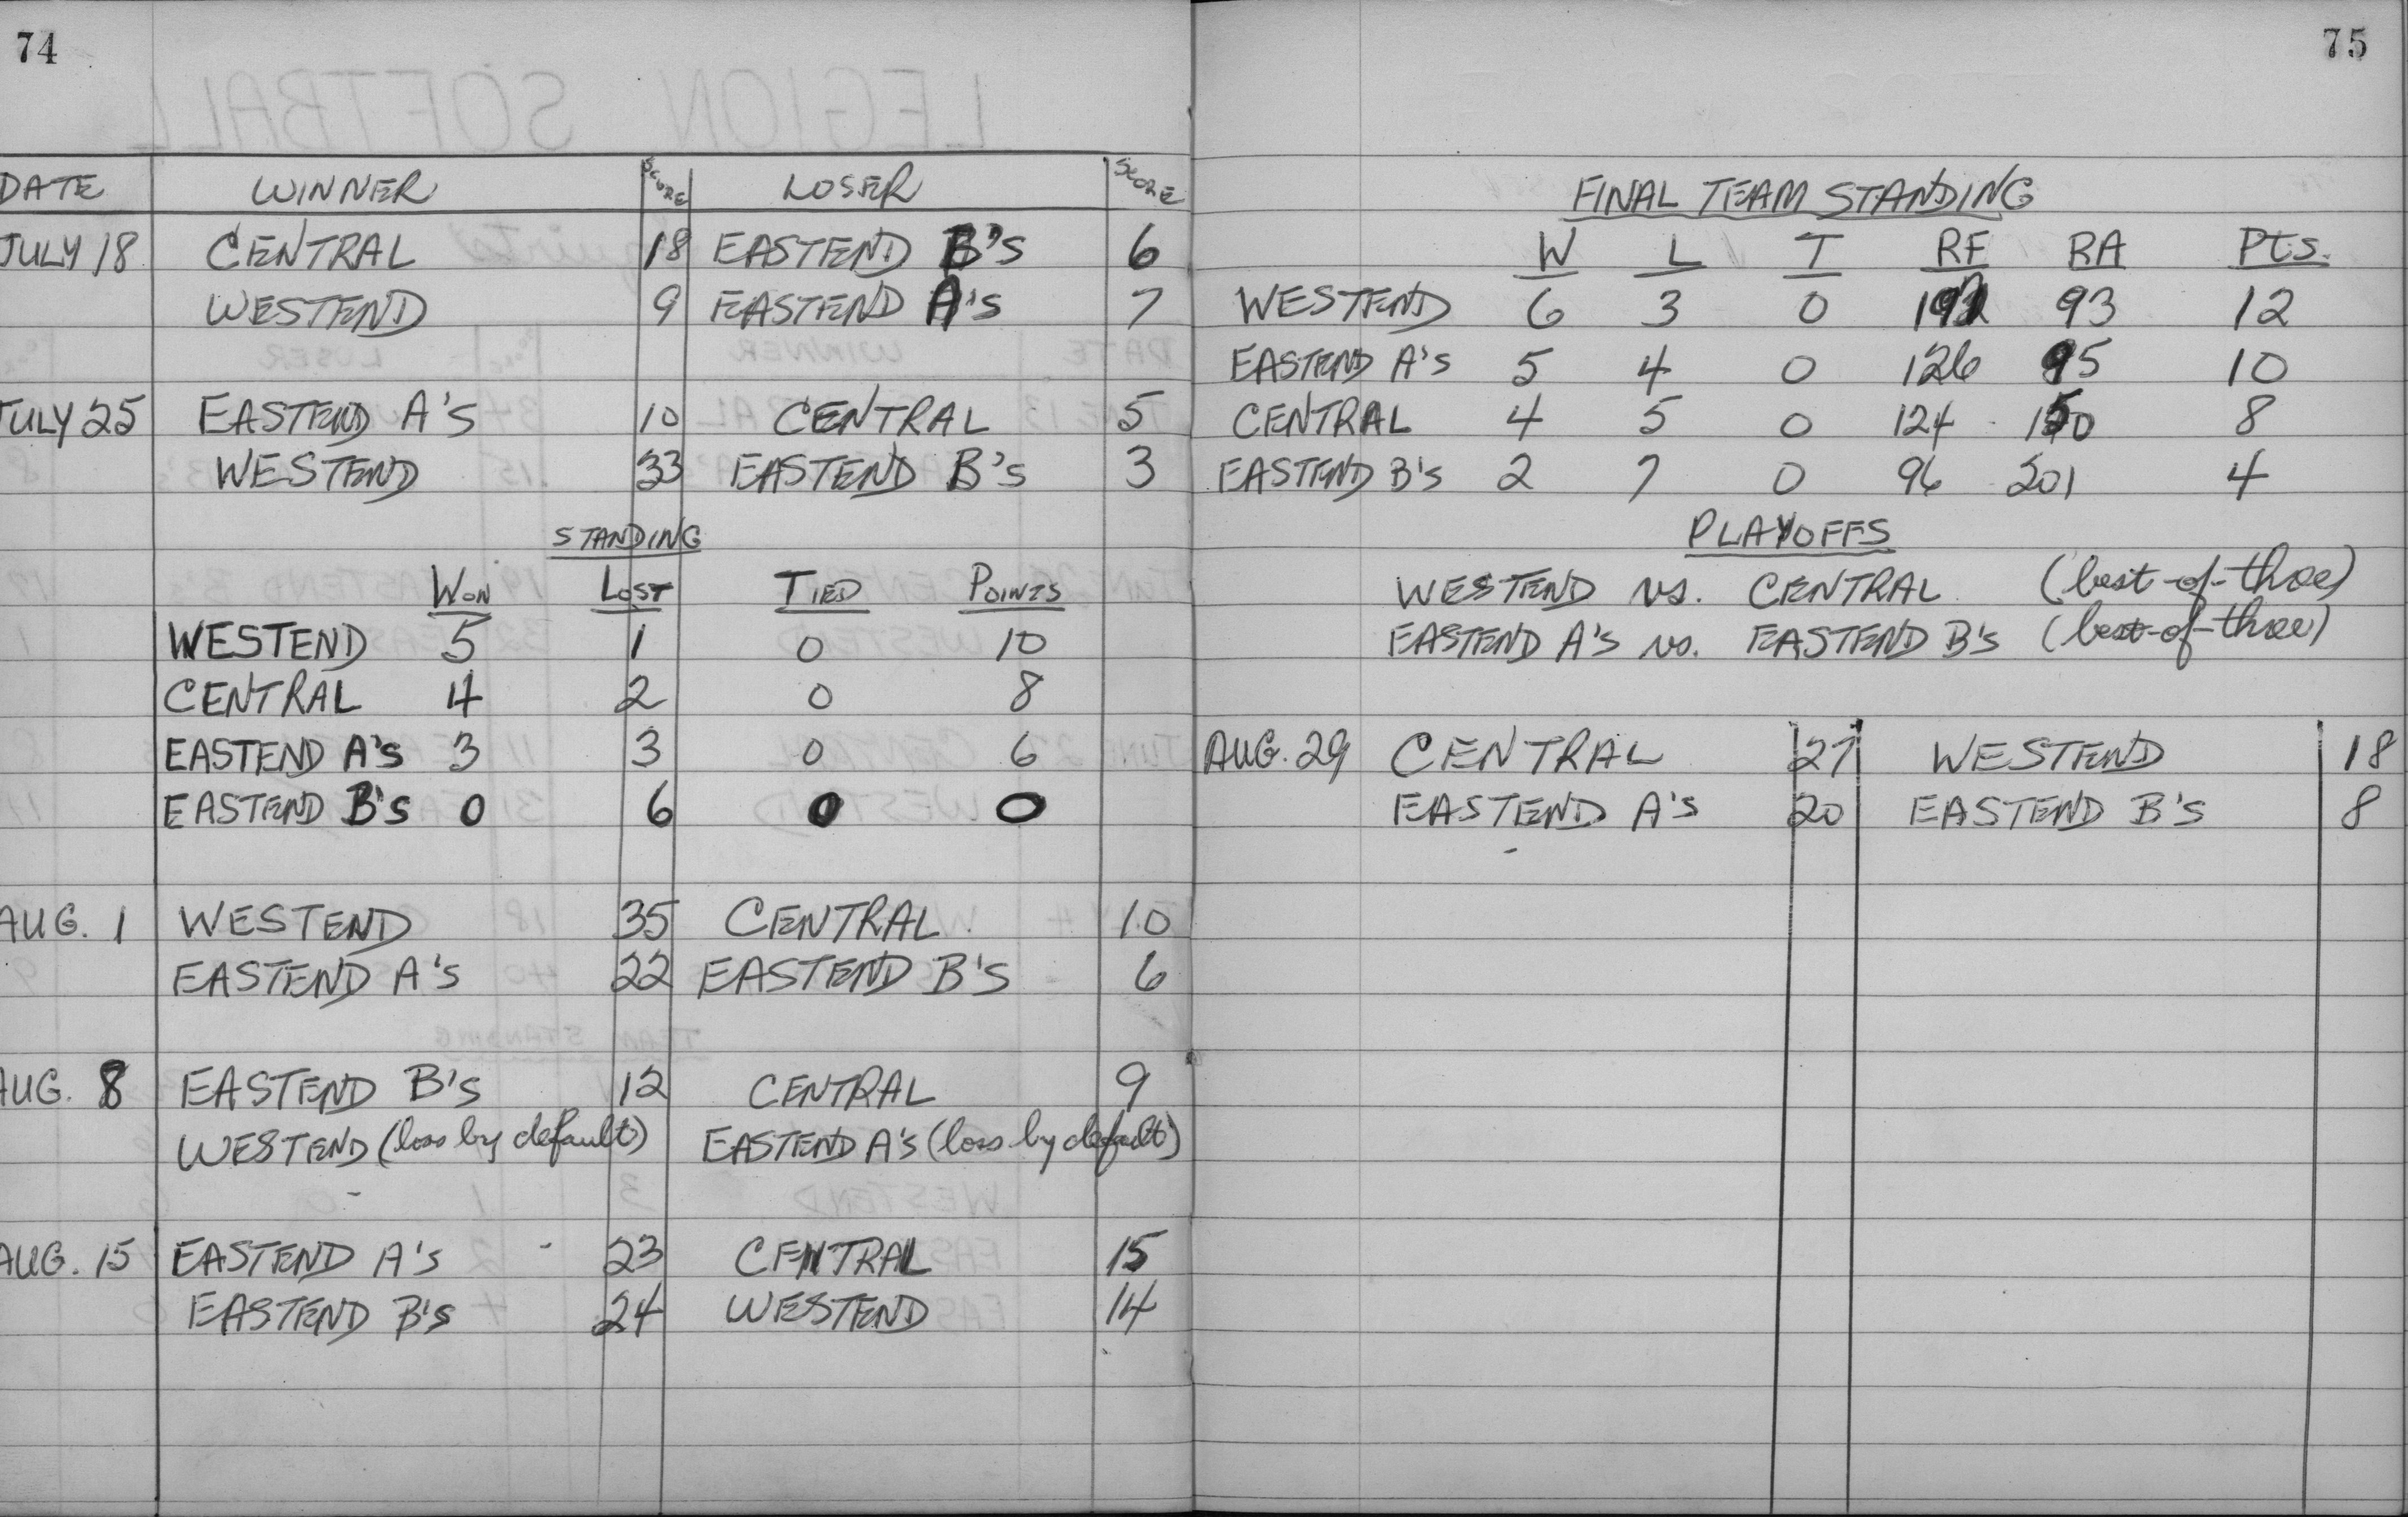 74
DATE WINNER SCORE LOSER SCORE
JULY 18 CENTRAL 18 EASTEND B's 6
WESTEND 9 EASTEND A's 7
JULY 25 EASTEND A's 10 CENTRAL 5
WESTEND 33 EASTEND B's 3
STANDING
WON LOST TIED POINTS
WESTEND 5 1 0 10
CENTRAL 4 2 0 8
EASTEND A's 3 3 0 6
EASTEND B's 0 6 0 0
AUG. 1 WESTEND 35 CENTRAL 10
EASTEND A's 22 EASTEND B's 6
AUG. 8 EASTEND B's 12 CENTRAL 9
WESTEND (loss by default) EASTEND A's (loss by default)
AUG. 15 EASTEND A's - 23 CENTRAL 15
EASTEND B's 24 WESTEND 14
75
FINAL TEAM STANDING
W L T RF RA Pts.
WESTEND 6 3 0 93 12
EASTEND A's 5 4 0 126 95 10
CENTRAL 4 5 0 124 150 8
EASTEND B's 2 7 0 96 201 4
PLAYOFFS
WESTEND vs. CENTRAL (best-of-three)
EASTEND A's vs. EASTEND B's (best-of-three)
AUG. 29 CENTRAL 27 WESTEND 18
EASTEND A's 20 EASTEND B's 8